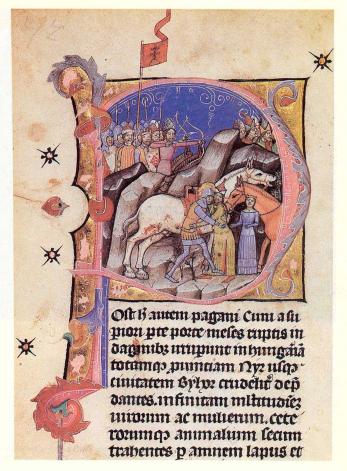 Ost h̄ autem pagani Cuni a su
piori pte porte meses ruptis in
daginibꝫ irrupunt in hungariā
totamqꝫ puinciam Nyr usqꝫ
ciuitatem Byhor crudelitͥ depͥ
dantes. infinitam mltitudiēꝫ
uirorum ac mulierum. cete
rorumqꝫ animalium secum
trahentes p amnem lapus et